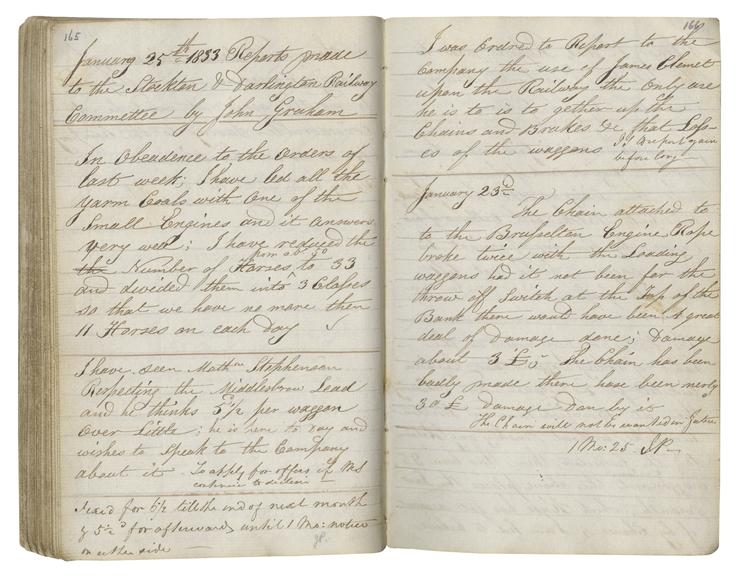 165
January 25th 1833 Reports made
to the Stockton & Darlington Railway
Committee by John Graham
In Obeadence to the Orders of
last week; I have led all the
Yarm Coals with one of the
Small Engines and it answers
very well; I have reduced the
the Number of Horses to 33
from abt 50
and divided them into 3 Classes
so that we have no more then
11 Horses on each day ✓
I have seen Mathw Stephenson
Respecting the Middlesbrow Lead
and he thinks 5 1/2 per waggon
over Little; he is here to day and
wishes to speak to the Company
about it To apply for offers if MS
continue to decline
fixed for 6/2 till the end of next month
& 5 1/2d for afterwards until 1 Mo: notice
on either side
JP.
166
I was Ordred to Report to the
Company the use of James Clemet
upon the Railway the Only use
he is to is to gether up the
Chains and Brakes &c that Loss-
es of the waggons
JG to report again
before long
January 23d
The Chain attached to
to the Brusselton Engine Rope
broke twice with the Loading
waggons had it not been for the
throw off Switch at the Top of the
Bank there would have been A great
deal of Damage done; Damage
about 3 £; The Chain has been
badly made there have been nerly
30 £ Damage Don by it
The Chain will not be wanted in future
1 Mo: 25 JP